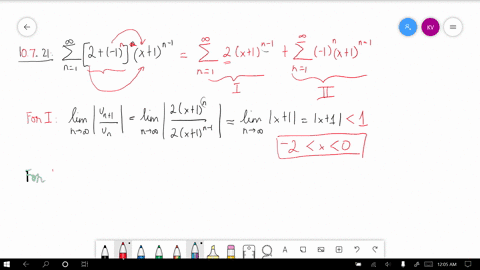 10.7.21. ∑_{n=1}^{∞} [2+(-1)^n] · (x+1)^{n-1} = ∑_{n=1}^{∞} 2(x+1)^{n-1} + ∑_{n=1}^{∞} (-1)^n (x+1)^{n-1}
I II
For I: lim_{n→∞} |u_{n+1}/u_n| = lim_{n→∞} |2(x+1)^n / 2(x+1)^{n-1}| = lim_{n→∞} |x+1| = |x+1| < 1
-2 < x < 0
For
KV
12:05 AM